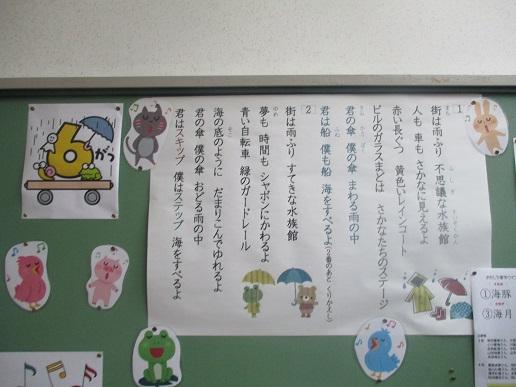 1
街は雨ふり 不思議な水族館
人も 車も さかなに見えるよ
赤い長ぐつ 黄色いレインコート
ビルのガラスまどは さかなたちのステージ
君の傘 僕の傘 まわる雨の中
君は船 僕も船 海をすべるよ(2番のあと くりかえし)
2
街は雨ふり すてきな水族館
夢も 時間も シャボンにかわるよ
青い自転車 緑のガードレール
海の底のように だまりこんでゆれるよ
君の傘 僕の傘 おどる雨の中
君はスキップ 僕はステップ 海をすべるよ
6がつ
①海豚
③海月